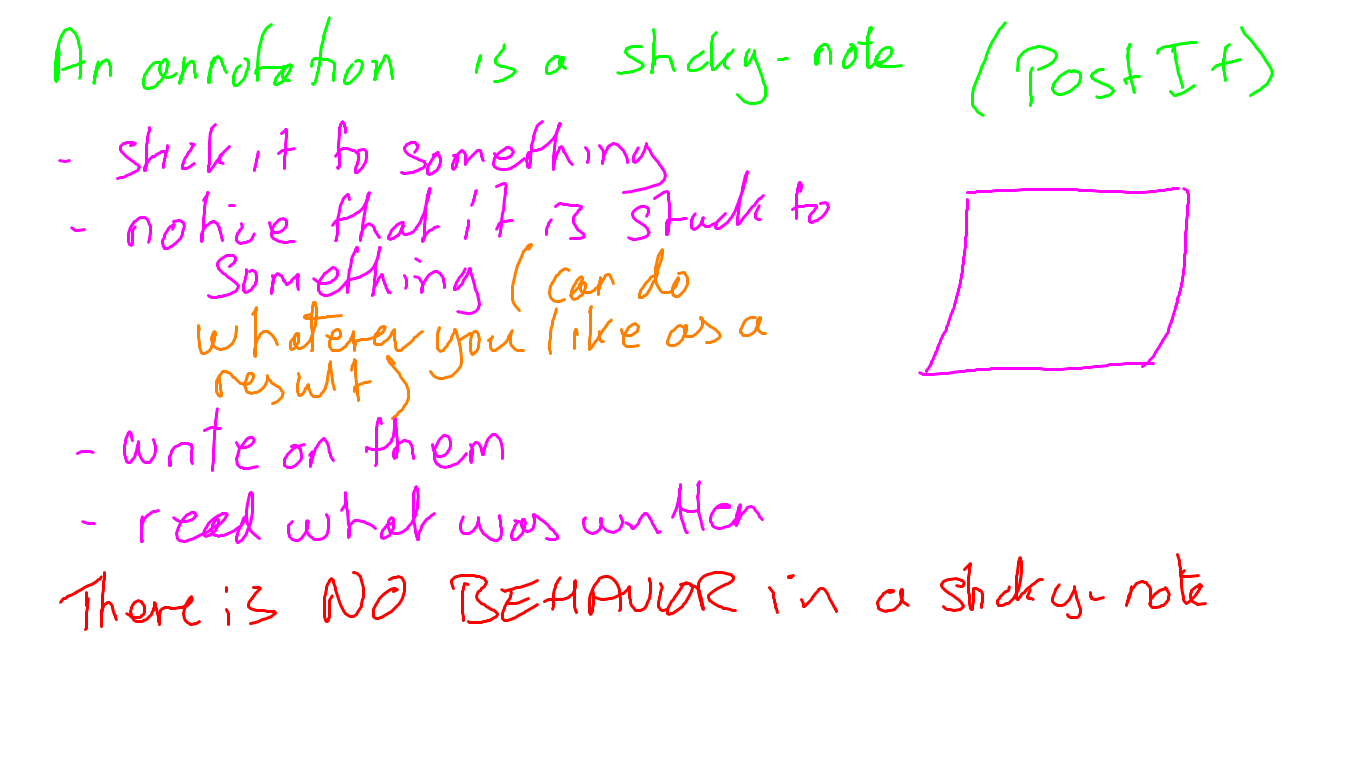 An annotation is a sticky-note (PostIt)
- stick it to something
- notice that it is stuck to
something (can do
whatever you like as a
result)
- write on them
- read what was written
There is NO BEHAVIOR in a sticky-note